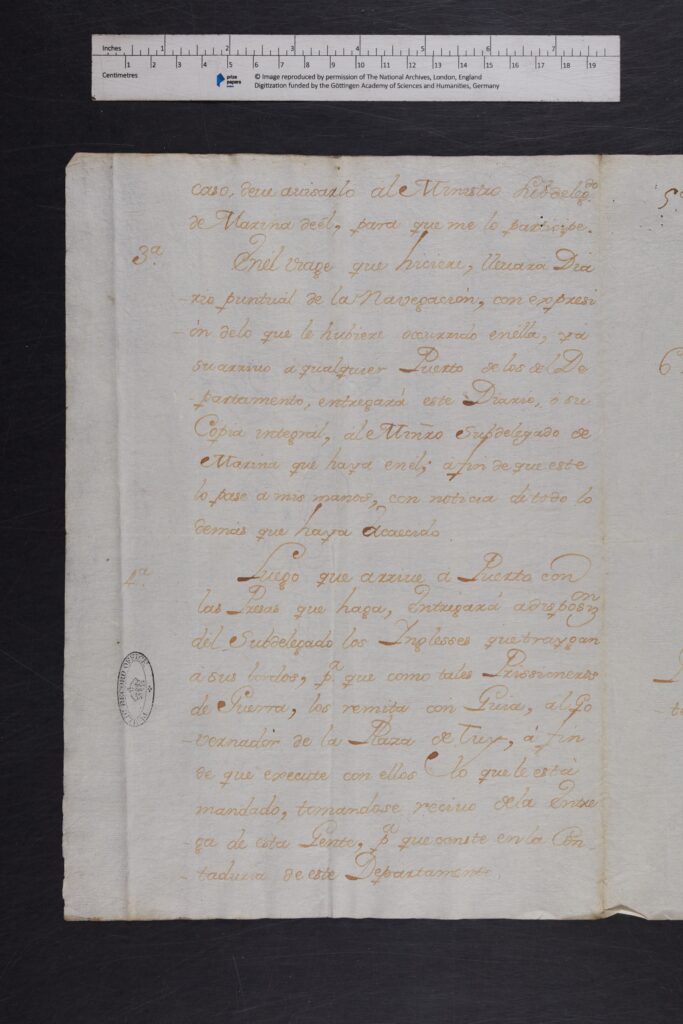 Inches 1 2 3 4 5 6 7
1 2 3 4 5 6 7 8 9 10 11 12 13 14 15 16 17 18 19
Centimetres
prize papers
© Image reproduced by permission of The National Archives, London, England
Digitization funded by the Göttingen Academy of Sciences and Humanities, Germany
caso, deve avisarlo al Ministro Subdeleg.do
de Marina deél, para que me lo participe.
3.a
Enél viage que hiciere, llevara Dia
-rio puntual de la Navegación, con expresi
-ón delo que le hubiere ocurrido enélla, ya
su arrivo á qualquier Puerto de los del De
partamento, entregará este Diario, o su
Copia integral, ál Minro Subdelegado de
Marina que haya enel; á fin de que este
lo pase á mis manos, con noticia de todo lo
demas que haya acaecido
4.a
Luego que arrive á Puerto con
las Presas que haga, Entregará a disposon
del Subdelegado los Inglesses que traygan
á sus bordos, p.a que como tales Prissioneros
de Guerra, los remita con Guia, al Go
-vernador de la Plaza de Tuy, á fin
de que execute con ellos lo que le está
mandado, tomandose recivo de la Entre
-ga de esta Gente, p.a que conste en la Con
-taduria de este Departamento.
PUBLIC RECORD OFFICE
5.
6.